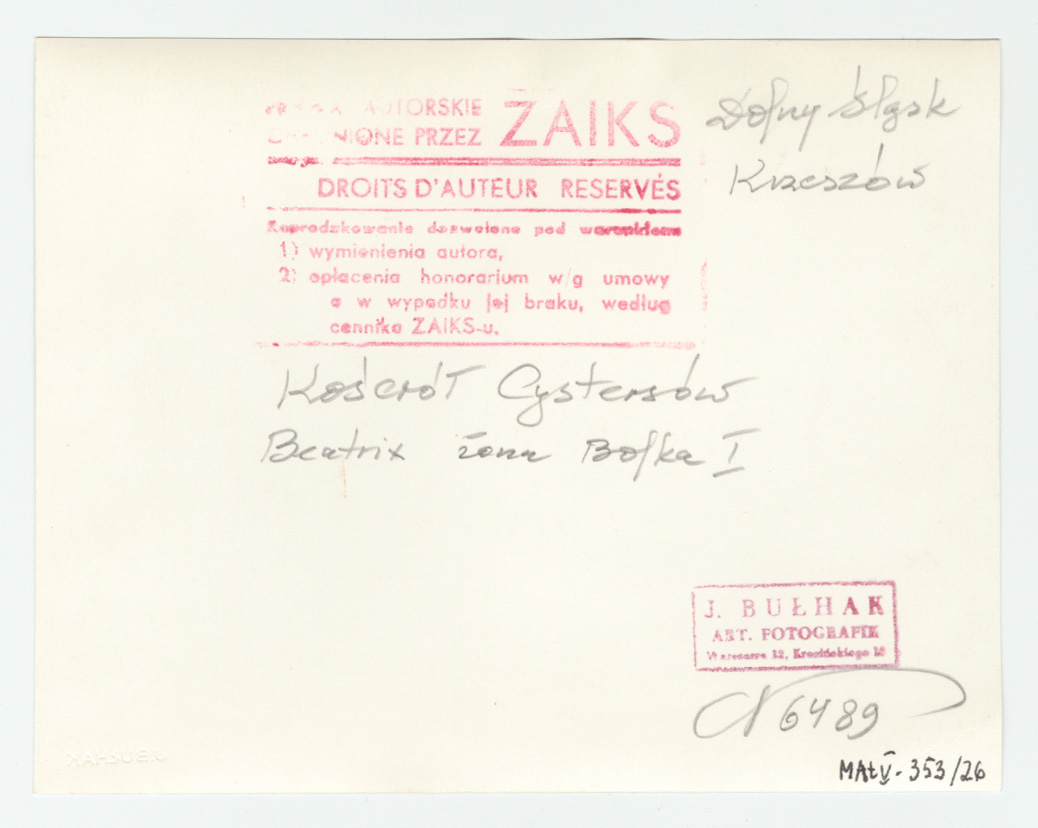 AUTORSKIE ZAIKS
PRZEZ
DROITS D'AUTEUR RESERVÉS
dozwolone pod warunkiem
1) wymienienia autora,
2) opłacenia honorarium w/g umowy
a w wypadku jej braku, według
cennika ZAIKS-u.
Dolny Śląsk
Krzeszów
Kościół Cystersów
Beatrix żona Bolka I
J. BUŁHAK
ART. FOTOGRAFIK
Warszawa 12, Krasińskiego
N 6489
MAtV-353/26
J. BUŁHAK